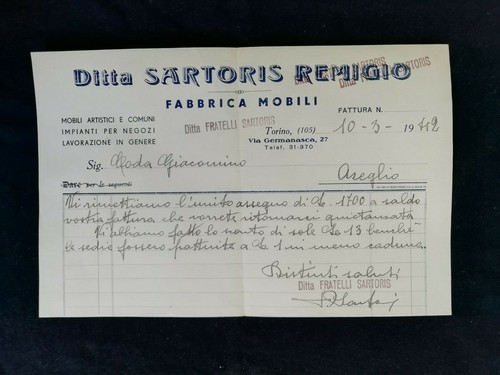 Ditta SARTORIS REMIGIO
Ditta FRATELLI SARTORIS
FABBRICA MOBILI
MOBILI ARTISTICI E COMUNI
IMPIANTI PER NEGOZI
LAVORAZIONE IN GENERE
Ditta FRATELLI SARTORIS
FATTURA N.
Torino, (105) 10-3-1942
Via Germanasca, 27
Telef. 31-370
Sig. Coda Giacomino
Aseglio
Dare per le seguenti
Vi rimettiamo l'unito assegno di £. 1700 a saldo
vostra fattura che vorrete ritornarci quietanzata
Vi abbiamo fatto lo sconto di sole £ 13 benchè
le sedie fossero pattuite a £ 1 in meno caduna.
Distinti saluti
Ditta FRATELLI SARTORIS